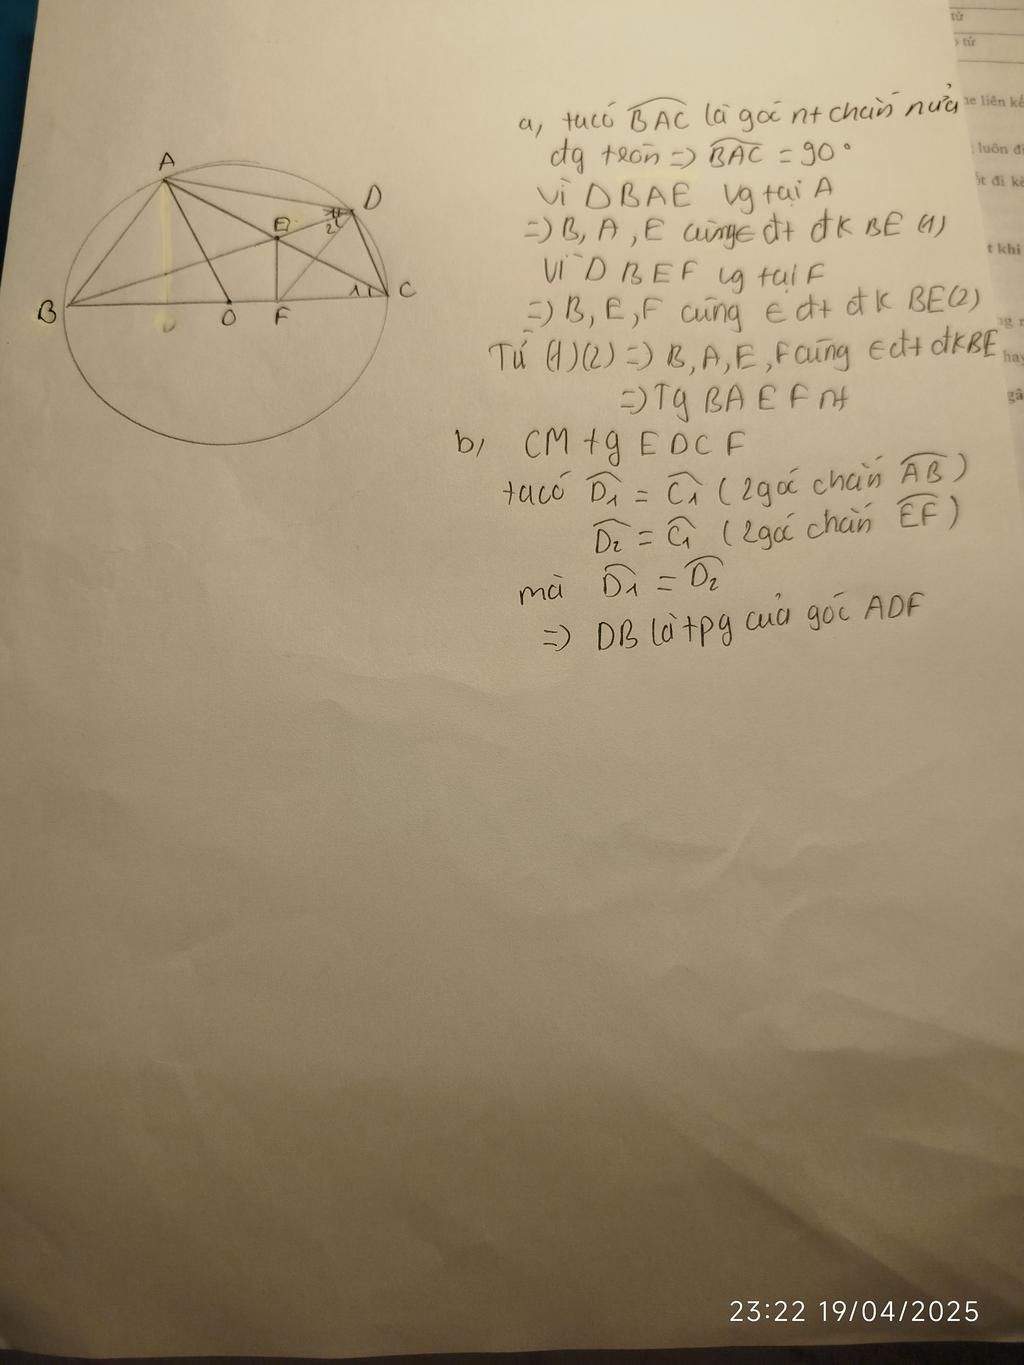 A
D
E
1
2
B
O
F
1
C
a, ta có BAC là góc nt chắn nửa
đg tròn => BAC = 90°
Vì Δ BAE vg tại A
=> B, A, E cùng ∈ đt đk BE (1)
Vì Δ BEF vg tại F
=> B, E, F cùng ∈ đt đk BE (2)
Từ (1)(2) => B, A, E, F cùng ∈ đt đk BE
=> Tg BAEF nt
b, CM tg EDCF
ta có D1 = C1 (2 góc chắn AB)
D2 = C1 (2 góc chắn EF)
mà D1 = D2
=> DB là tpg của góc ADF
tử
tử
he liên kế
luôn đi
ết đi kè
t khi
ng
hay
gâ
23:22 19/04/2025